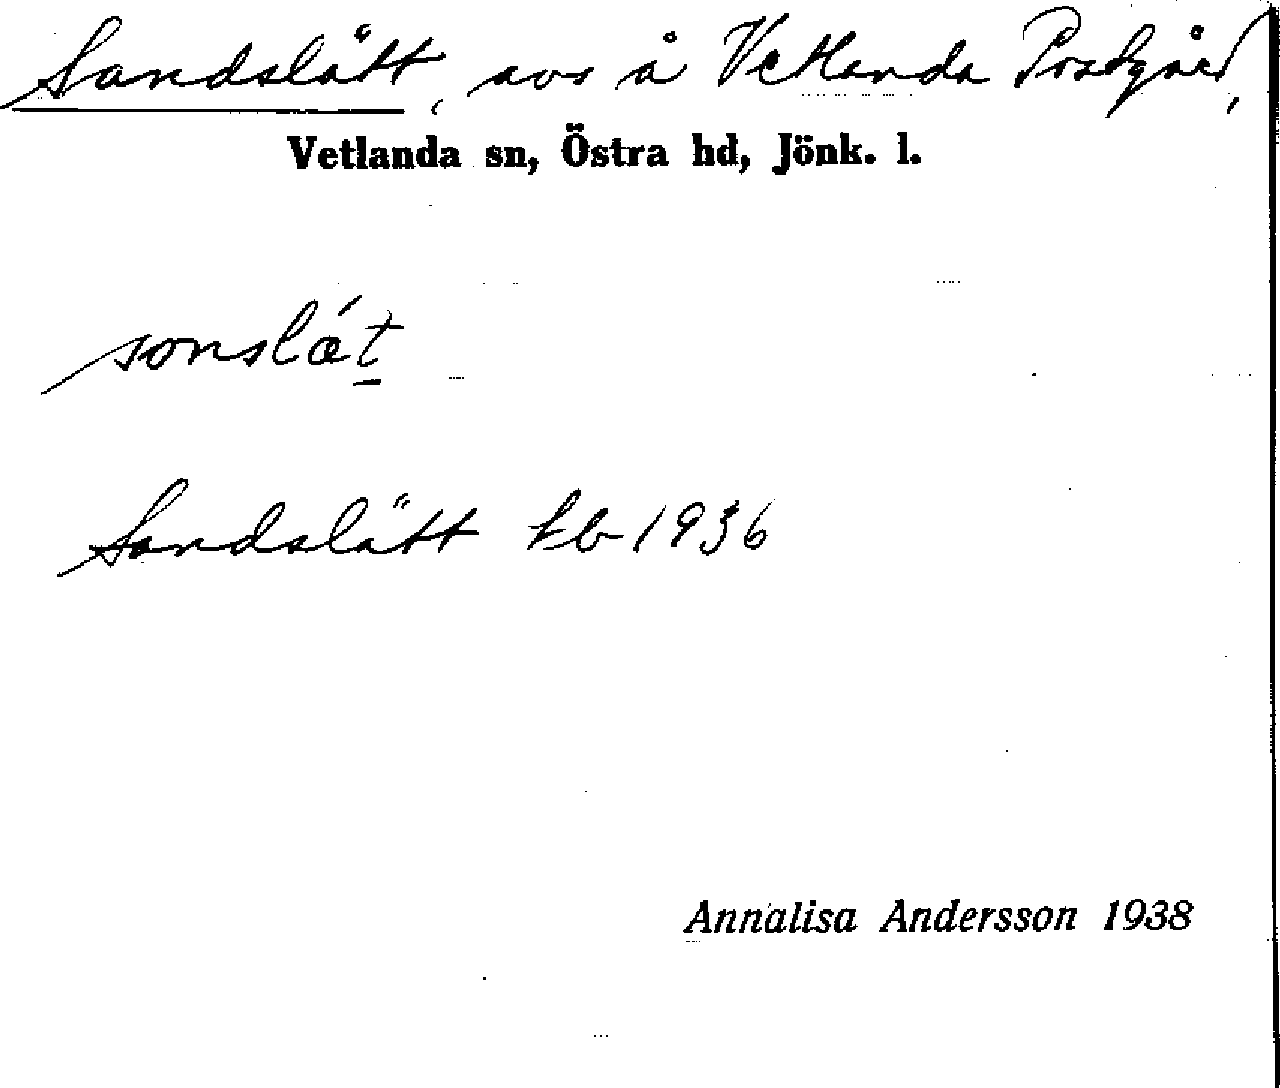 Sandslätt, avs å Vetlanda Prästgård,
Vetlanda sn, Östra hd, Jönk. l.
sonslǽt
Sandslätt kb 1936
Annalisa Andersson 1938